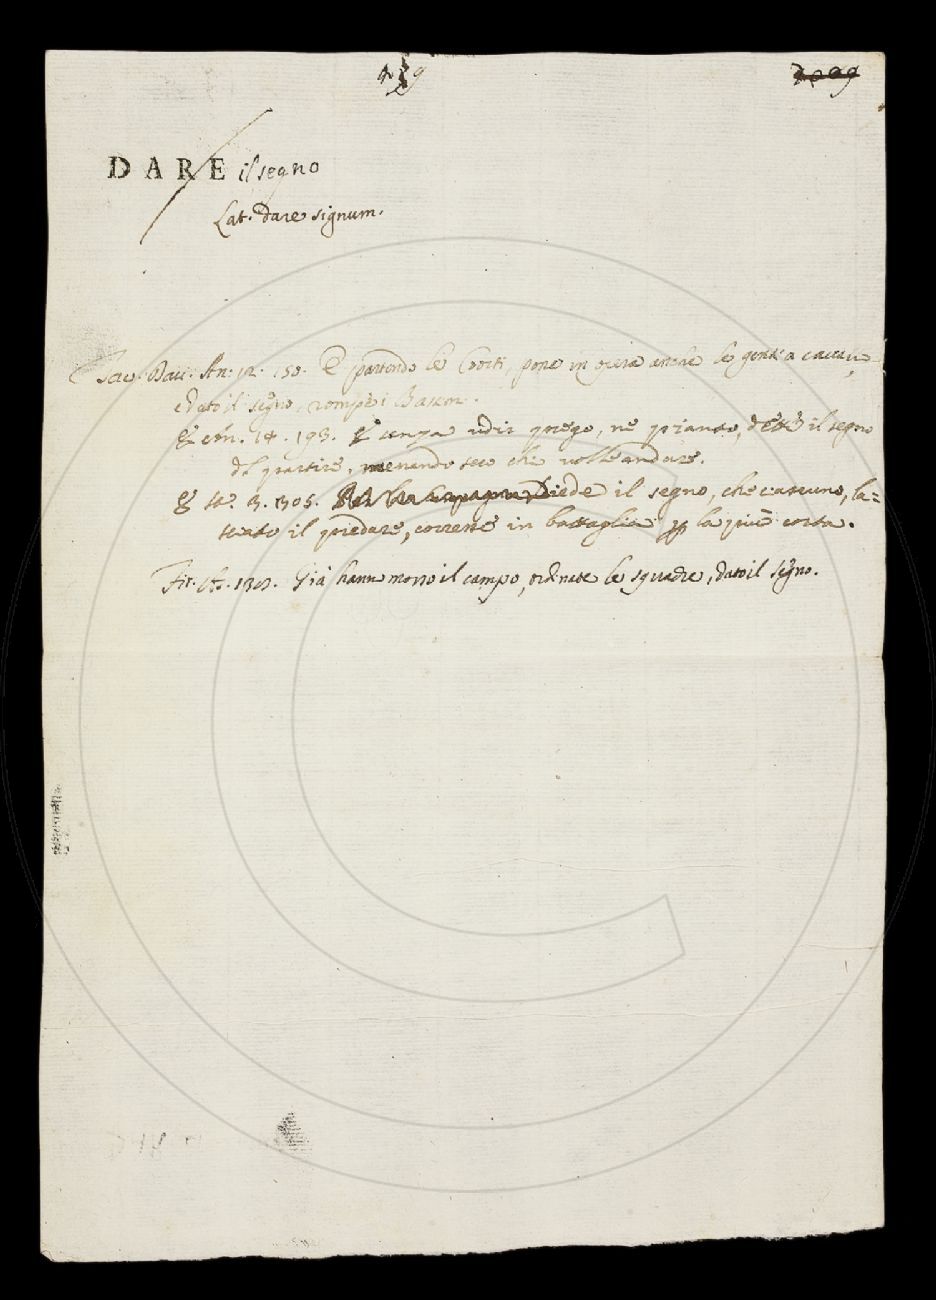 DARE il segno
Lat. dare signum.
Tac. Dav. An. 12. 150. E partendo le Coorti, pone in opera anche le genti a cavallo,
e dato il segno, rompe i
E An. 14. 193. E senza udir prego, nè pianto, dette il segno
di partire, menando seco chi volle andare.
E St. 3. 305. Diede il segno, che ciascuno, la=
sciato il predare, corresse in battaglia p la più corta.
Già hann mosso il campo, ordinate le squadre, dato il segno.